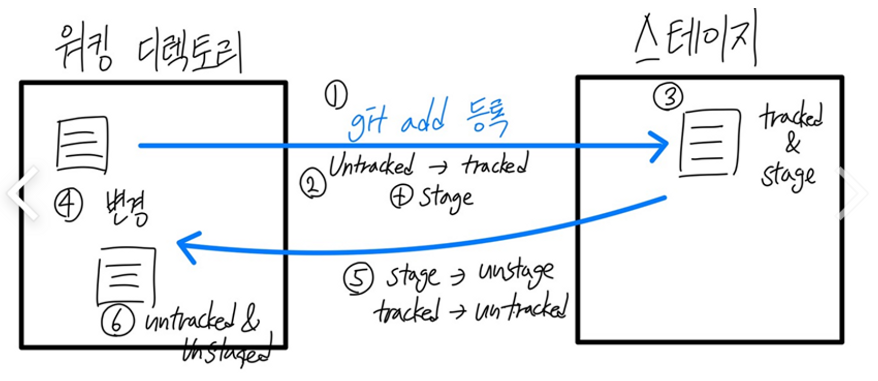 워킹 디렉토리
스테이지
①
git add 등록
② Untracked → tracked
⊕ stage
③
tracked
&
stage
④ 변경
⑤ stage → unstage
tracked → untracked
⑥ untracked &
Unstaged